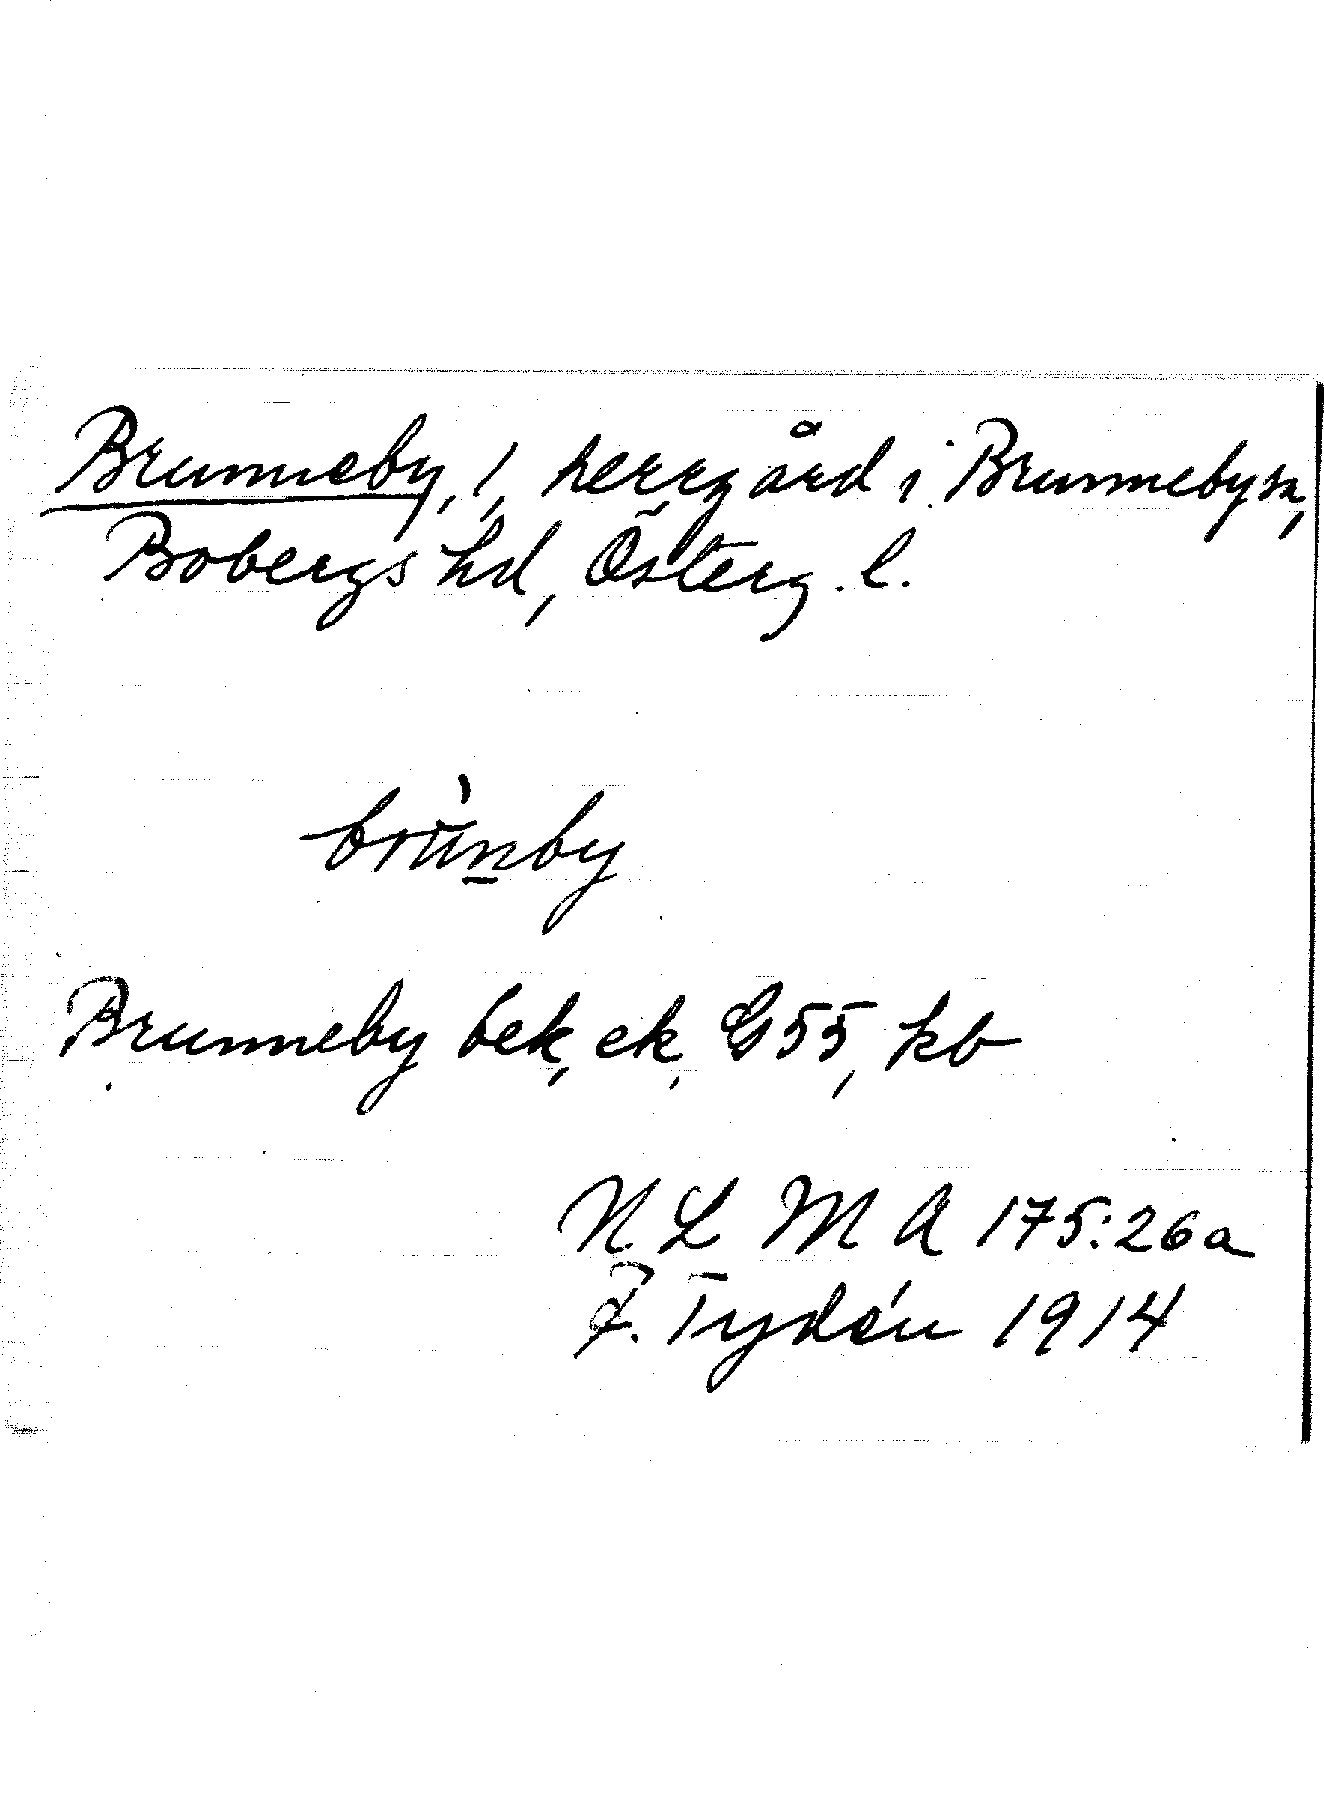 Brunneby, 1, herrgård i Brunneby sn,
Bobergs hd, Österg. l.
brùn̲by
Brunneby bek, ek, G55, kb
N L M A 175:26a
F. Tydén 1914